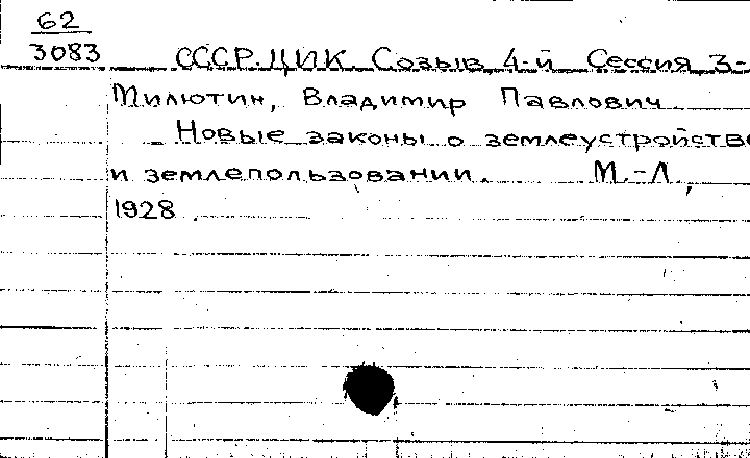 62
3083
СССР. ЦИК. Созыв 4-й Сессия 3-
Милютин, Владимир Павлович
Новые законы о землеустройстве
и землепользовании. М.-Л.,
1928.